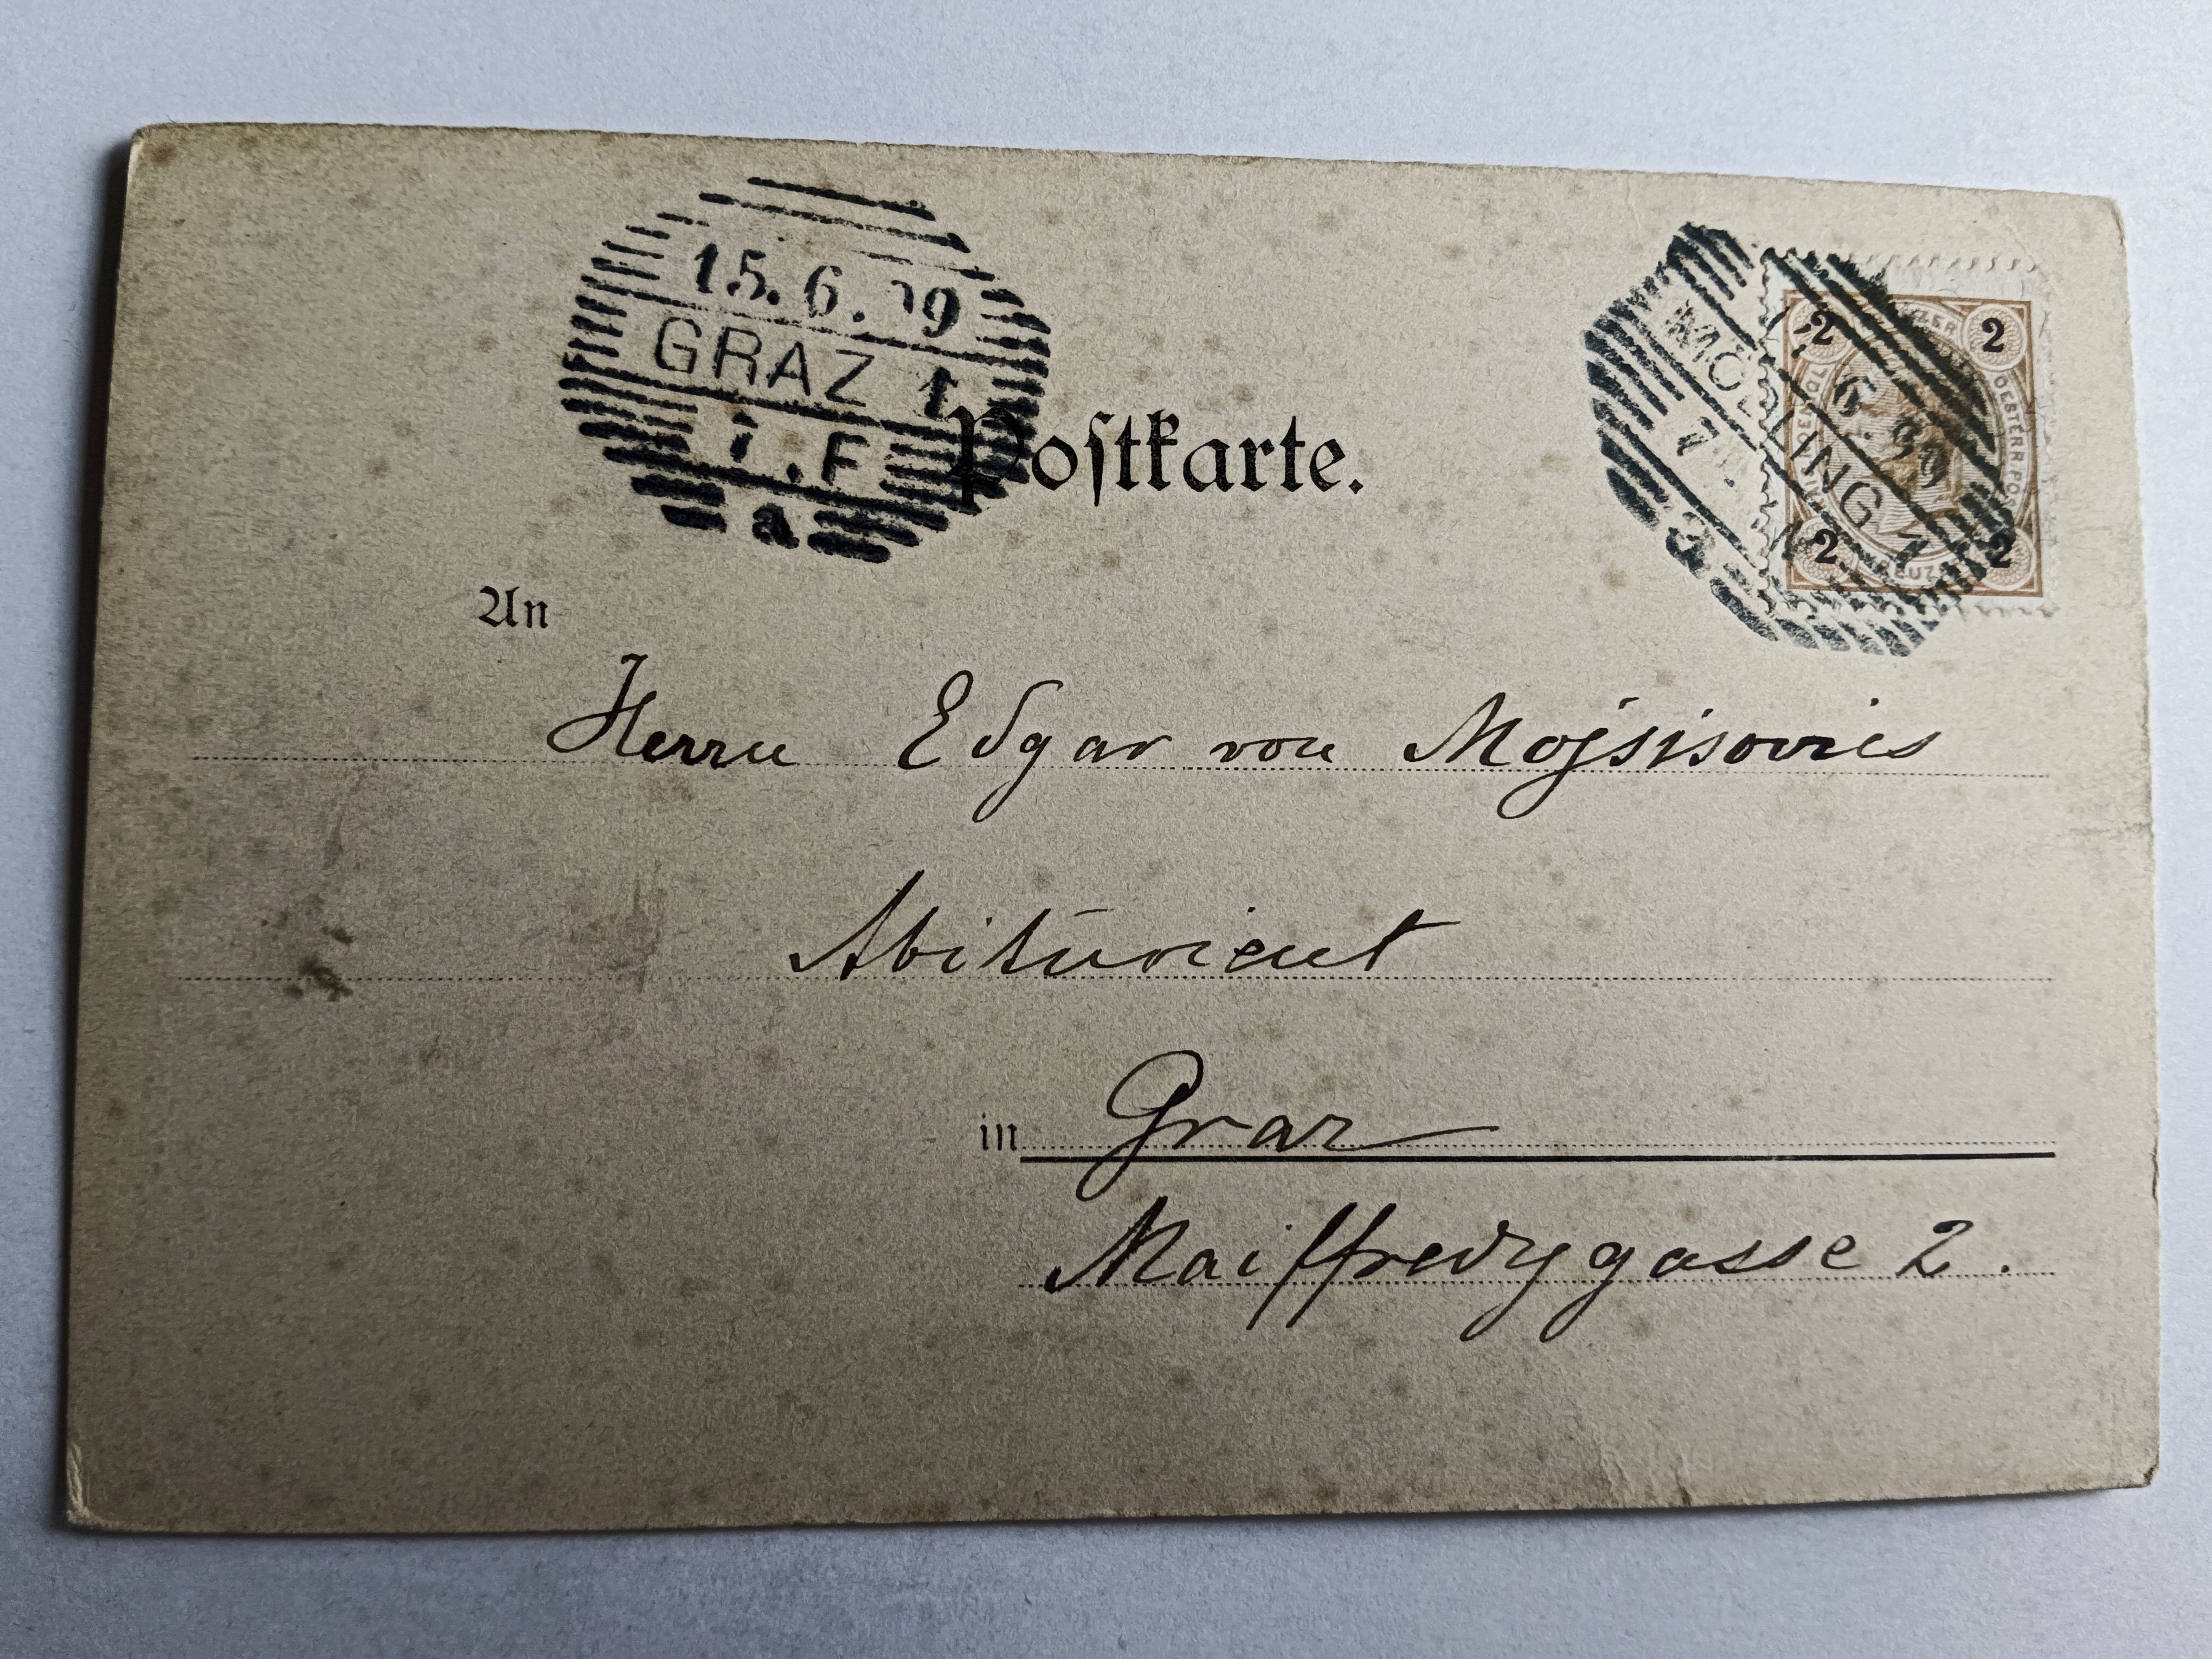 15.6.99
GRAZ 1
7.F
a
Postkarte.
MÖDLING 1
6.99
7. N
2 2
2 2
An
Herrn Edgar von Mojsisovics
Abiturient
in Graz
Maiffredygasse 2.